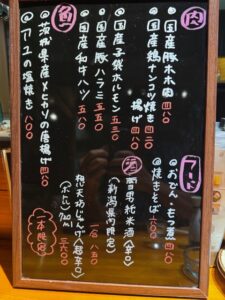 肉
◎国産豚ホホ肉 四八〇
◎国産鶏ナンコツ焼き 四二〇
揚げ 四八〇
◎国産子袋ホルモン 五三〇
◎国産豚ハラミ 五三〇
◎国産和牛ハツ 五八〇
魚
◎茨城県産メヒカリの唐揚げ 四八〇
◎アユの塩焼き 八〇〇
フード
◎おでん もつ煮 四八〇
◎焼きそば 六〇〇
酒
◎雪男純米酒
(新潟県南魚沼)
想天坊じゃんげ超辛口
一合 八五〇
(ボトル) 720ml 三六〇〇
一本限定